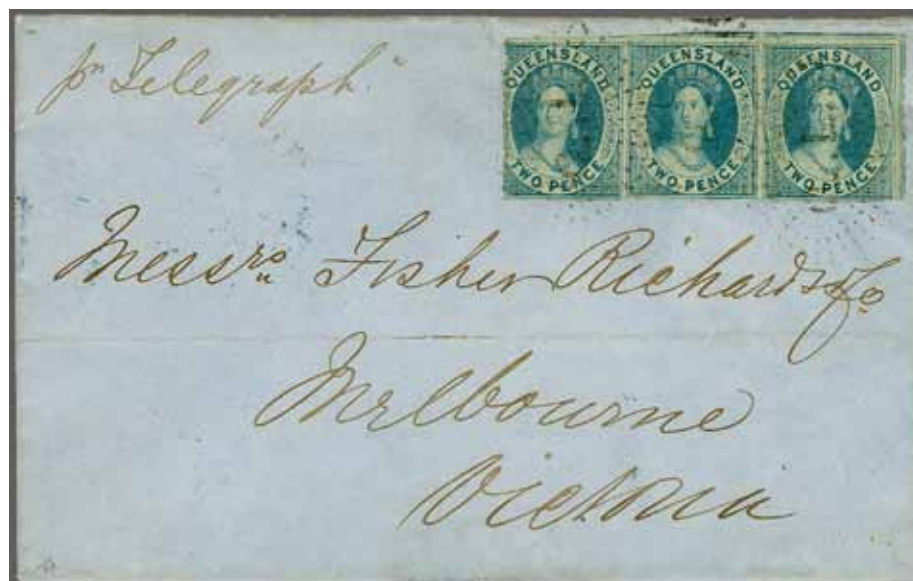 pr Telegraph
QUEENSLAND QUEENSLAND QUEENSLAND
TWO PENCE TWO PENCE TWO PENCE
Messrs Fisher Richards & Co
Melbourne
Victoria